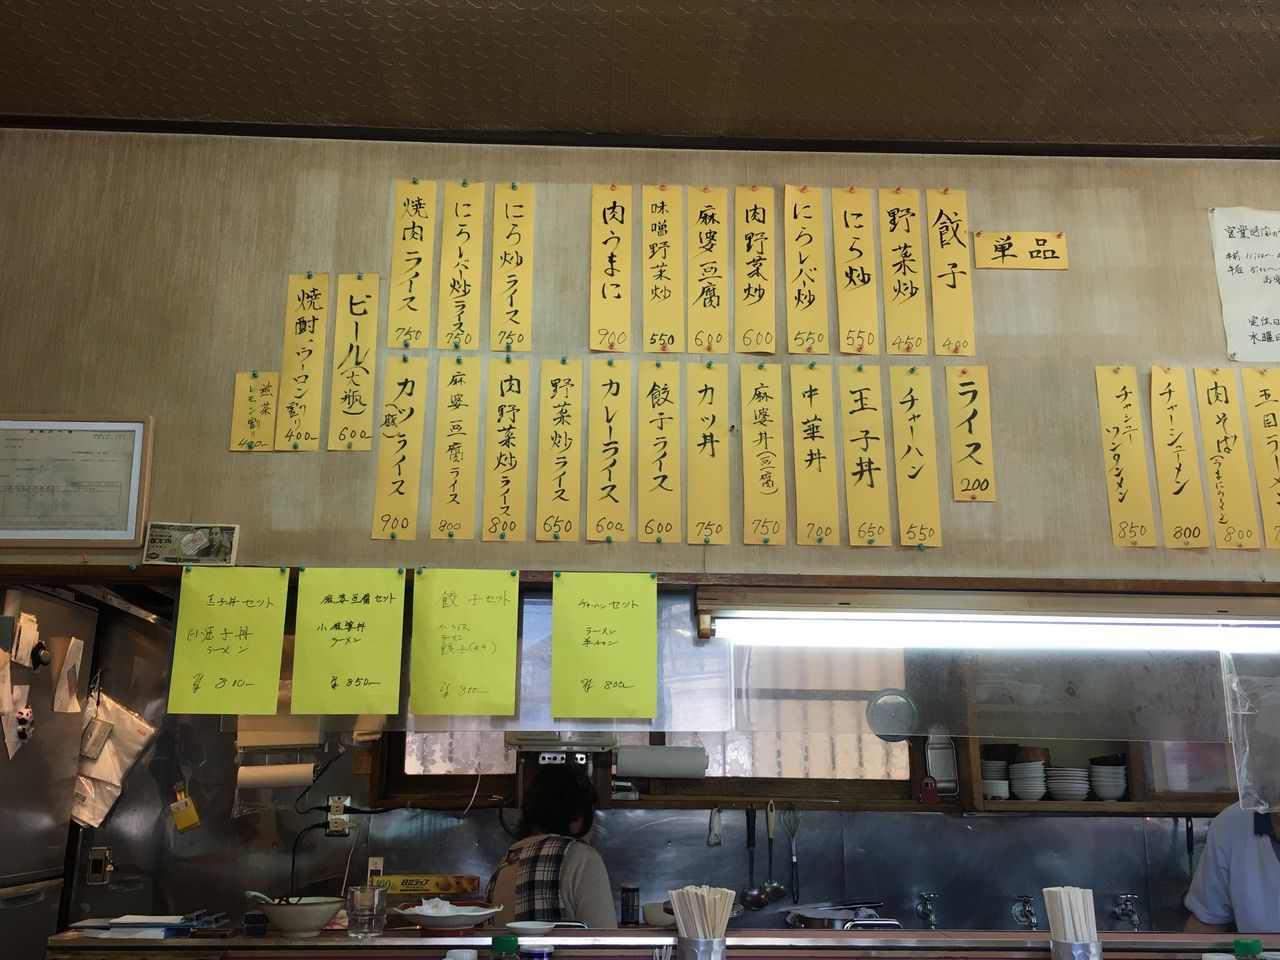 単品
餃子 400
野菜炒 450
にら炒 550
にらレバー炒 550
肉野菜炒 600
麻婆豆腐 600
味噌野菜炒 550
肉うまに 900
にら炒ライス 750
にらレバー炒ライス 750
焼肉ライス 750
ビール(大瓶) 600
焼酎、ウーロン割り 400
煎茶
レモン割り 400
ライス 200
チャーハン 550
玉子丼 650
中華丼 700
麻婆丼(豆腐) 750
カツ丼 750
餃子ライス 600
カレーライス 600
野菜炒ライス 650
肉野菜炒ライス 800
麻婆豆腐ライス 800
カツライス 900
肉そば(うまにラーメン) 800
チャーシューメン 800
チャシューワンタンメン 850
営業時間
定休日
水曜日
玉子丼セット
玉子丼
ラーメン
¥ 800
麻婆豆腐セット
小麻婆丼
ラーメン
¥ 850
餃子セット
小ライス
ラーメン
餃子
¥ 800
チャーハンセット
ラーメン
半チャン
¥ 800